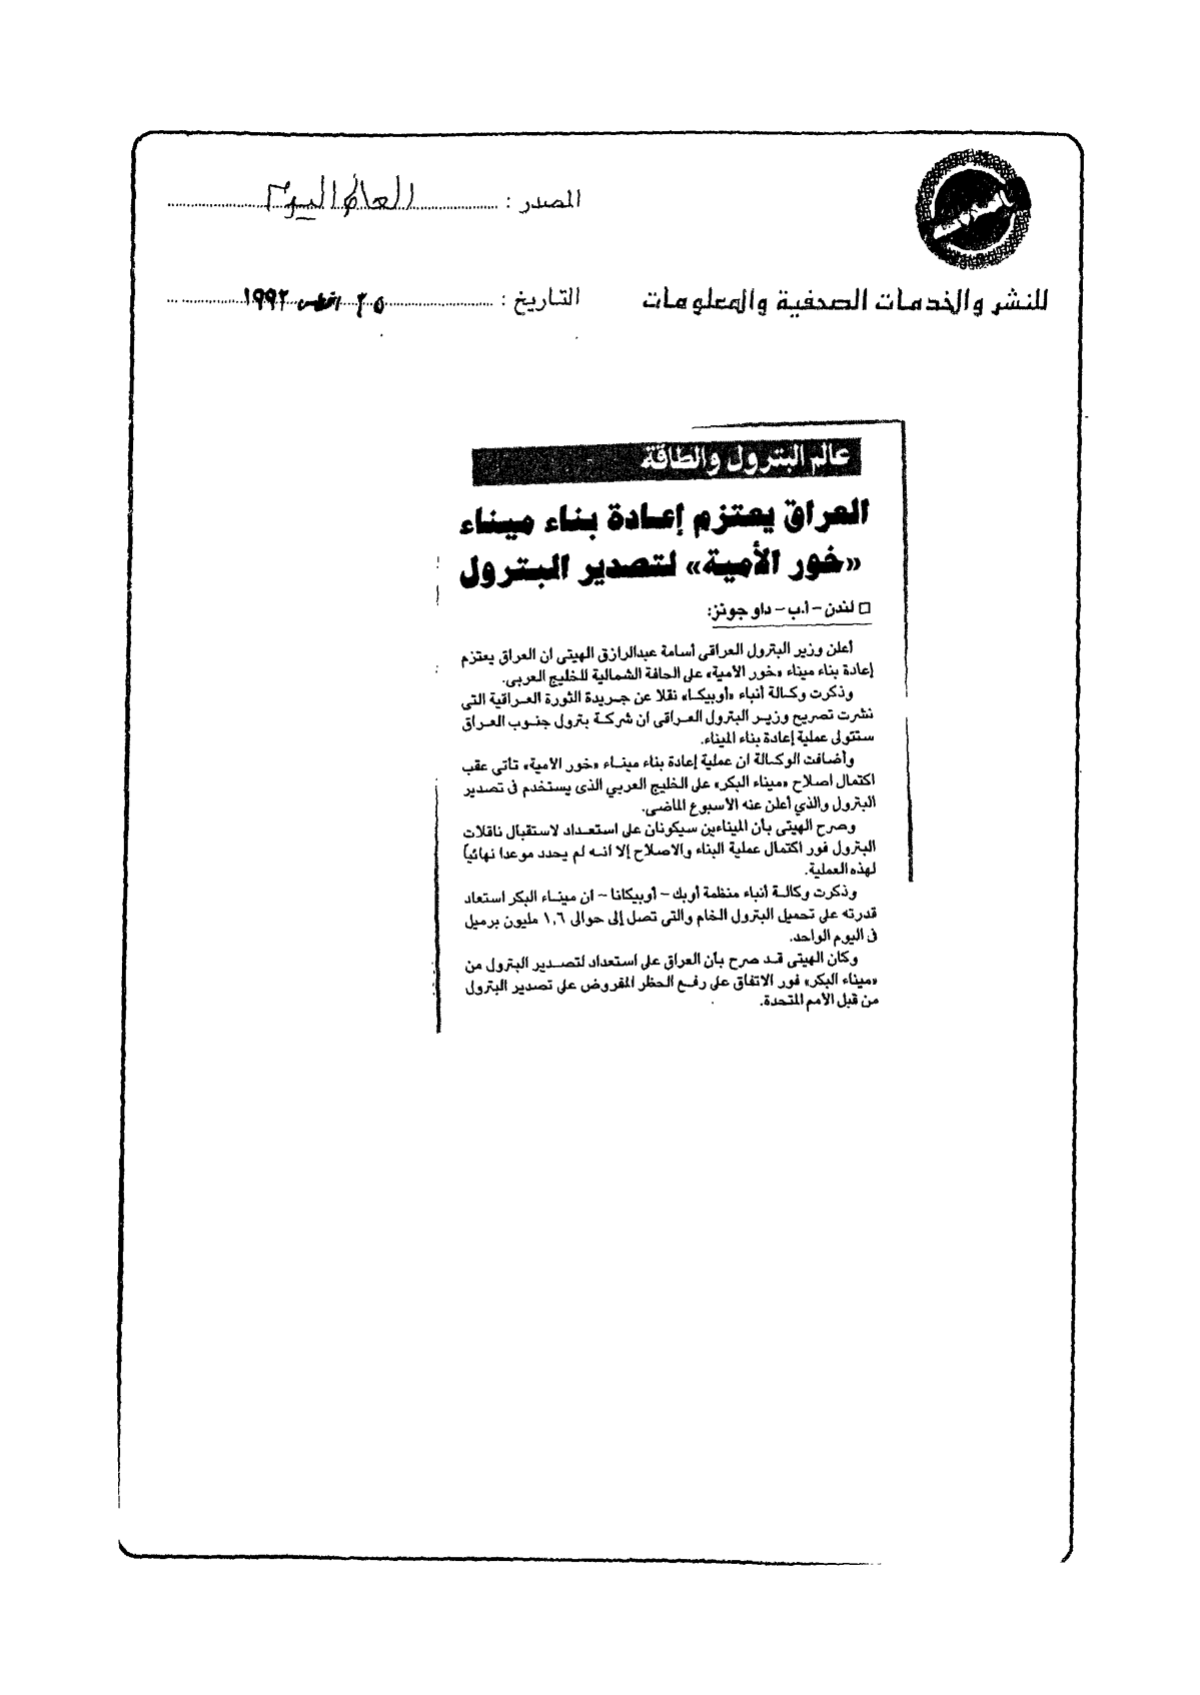 المصدر : العالم اليوم
للنشر والخدمات الصحفية والمعلومات
التاريخ : ٢٥ اغسطس ١٩٩٢
عالم البترول والطاقة
العراق يعتزم إعادة بناء ميناء
«خور الأمية» لتصدير البترول
□ لندن - أ.ب - داو جونز:
أعلن وزير البترول العراقى أسامة عبدالرازق الهيتى ان العراق يعتزم
إعادة بناء ميناء «خور الأمية» على الحافة الشمالية للخليج العربى.
وذكرت وكالة أنباء «أوبيكا» نقلا عن جريدة الثورة العراقية التى
نشرت تصريح وزير البترول العراقى ان شركة بترول جنوب العراق
ستتولى عملية إعادة بناء الميناء.
وأضافت الوكالة ان عملية إعادة بناء ميناء «خور الأمية» تأتى عقب
اكتمال اصلاح «ميناء البكر» على الخليج العربي الذى يستخدم فى تصدير
البترول والذي أعلن عنه الاسبوع الماضى.
وصرح الهيتى بأن الميناءين سيكونان على استعداد لاستقبال ناقلات
البترول فور اكتمال عملية البناء والاصلاح إلا انه لم يحدد موعدا نهائياً
لهذه العملية.
وذكرت وكالة أنباء منظمة أوبك - أوبيكانا - ان ميناء البكر استعاد
قدرته على تحميل البترول الخام والتى تصل إلى حوالى ١,٦ مليون برميل
فى اليوم الواحد.
وكان الهيتى قد صرح بأن العراق على استعداد لتصدير البترول من
«ميناء البكر» فور الاتفاق على رفع الحظر المفروض على تصدير البترول
من قبل الأمم المتحدة.